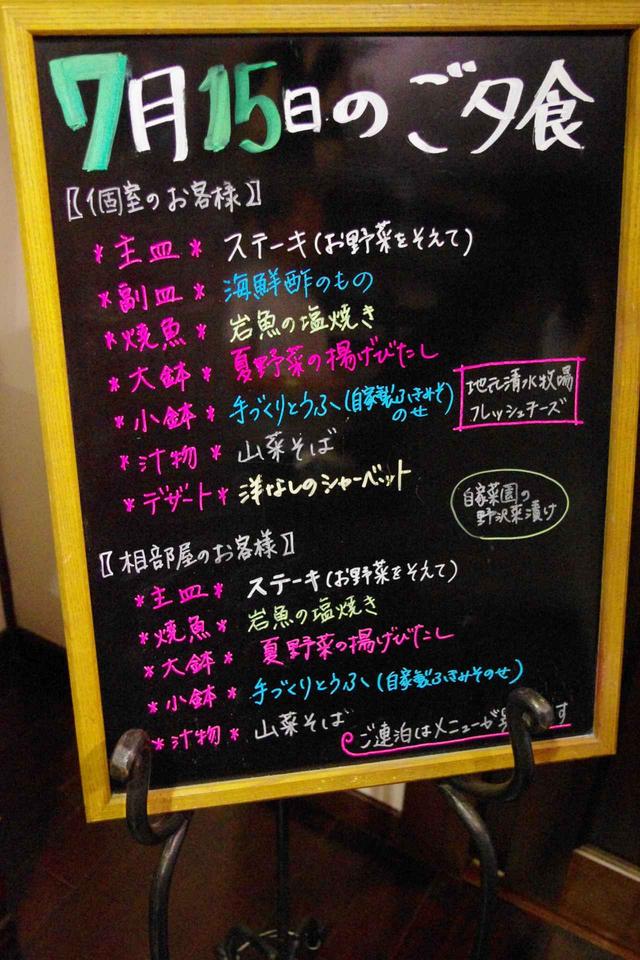 7月15日のご夕食
〖個室のお客様〗
*主皿* ステーキ(お野菜をそえて)
*副皿* 海鮮酢のもの
*焼魚* 岩魚の塩焼き
*大鉢* 夏野菜の揚げびたし
*小鉢* 手づくりとうふ(自家製ふきみそのせ)
地元清水牧場
フレッシュチーズ
*汁物* 山菜そば
*デザート* 洋なしのシャーベット
自家菜園の
野沢菜漬け
〖相部屋のお客様〗
*主皿* ステーキ(お野菜をそえて)
*焼魚* 岩魚の塩焼き
*大鉢* 夏野菜の揚げびたし
*小鉢* 手づくりとうふ(自家製ふきみそのせ)
*汁物* 山菜そば
ご連泊はメニューが